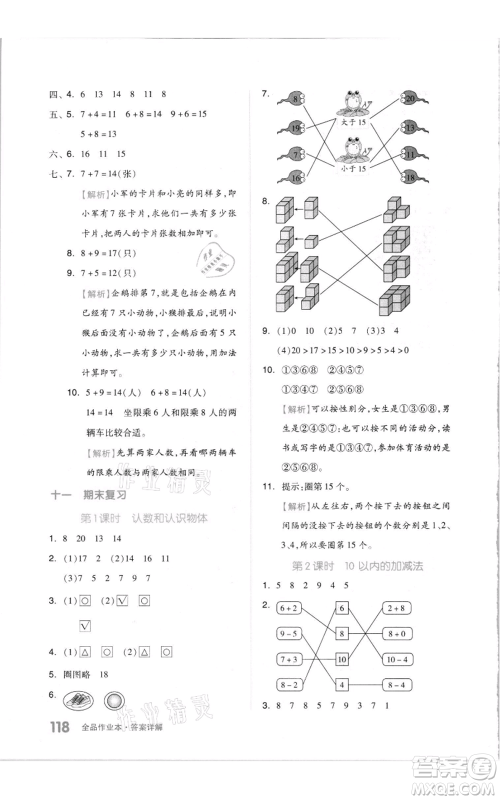 四、4. 6 13 14 17 18
五、5. 7+4=11 6+8=14 9+6=15
5+8=13
六、6. 16 11 15
七、7. 7+7=14(张)
【解析】小军的卡片和小亮的同样多,即
小军有7张卡片,小亮也有7张卡片。
求两人的卡片张数和用加法。
8. 8+9=17(只)
9. 7+5=12(只)
【解析】企鹅排第7,就是包括企鹅在
内有7只小动物,小猴后面有5只小
动物,说明小猴和企鹅紧挨着,且小
猴后面小动物的只数不包括小猴。
10. 5+9=14(人) 6+8=14(人)
14=14 坐限乘4人和限乘6人的两
辆车比较合适。
【解析】先算两家人数,再算两辆车
的限乘人数和,最后比较即可。
十一 期末复习
第1课时 认数和认识物体
1. 8 20 14 13
2. (1)5 4 8 15 11 6
(2)13 7 5 2 7 9 7
3. (1)□○ (2)☑○
□ ☑
4. (1)△○ (2)□△○
5. 圈图略 18
6.
118 全品作业本·答案详解
7.
8 19 7 16
大于15
小于15
20 10 13 18
8.
9. (1)20 (2)19 17 (3)3 4
(4)20>17>15>12>9>7
10. ①③⑥⑧ ②④⑤⑦
①③⑥⑧ ②④⑤⑦
【解析】可以按性别分,女生是①③⑥⑧,
男生是②④⑤⑦;按不同的活动分,
读书或写字的是①③⑥⑧,参加体育活
动的是②④⑤⑦。
11. 提示:圈第15个。
【解析】从左往右,两个按下去的按钮中
间间隔的没有按下去的按钮的个数依
次是1,2,3,4,所以要圈第15个。
第2课时 10以内的加减法
1. 8 5 2 9 4 5
2.
6+2 6 2+8
9-5 8 8+0
7+3 10 9-3
8-2 4 7-3
3. 8 7 8 3 7 1 9 7
作业精灵
作业精灵
答案圈
MXQE.COM